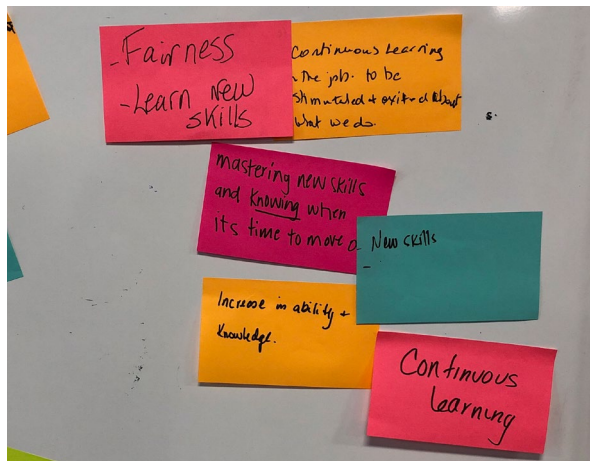 -Fairness
-Learn New
skills
Continuous Learning
- The job. to be
stimulated + exited about
what we do.
mastering new skills
and knowing when
its time to move o
- New skills
-
Increase in ability +
Knowledge.
Continuous
learning